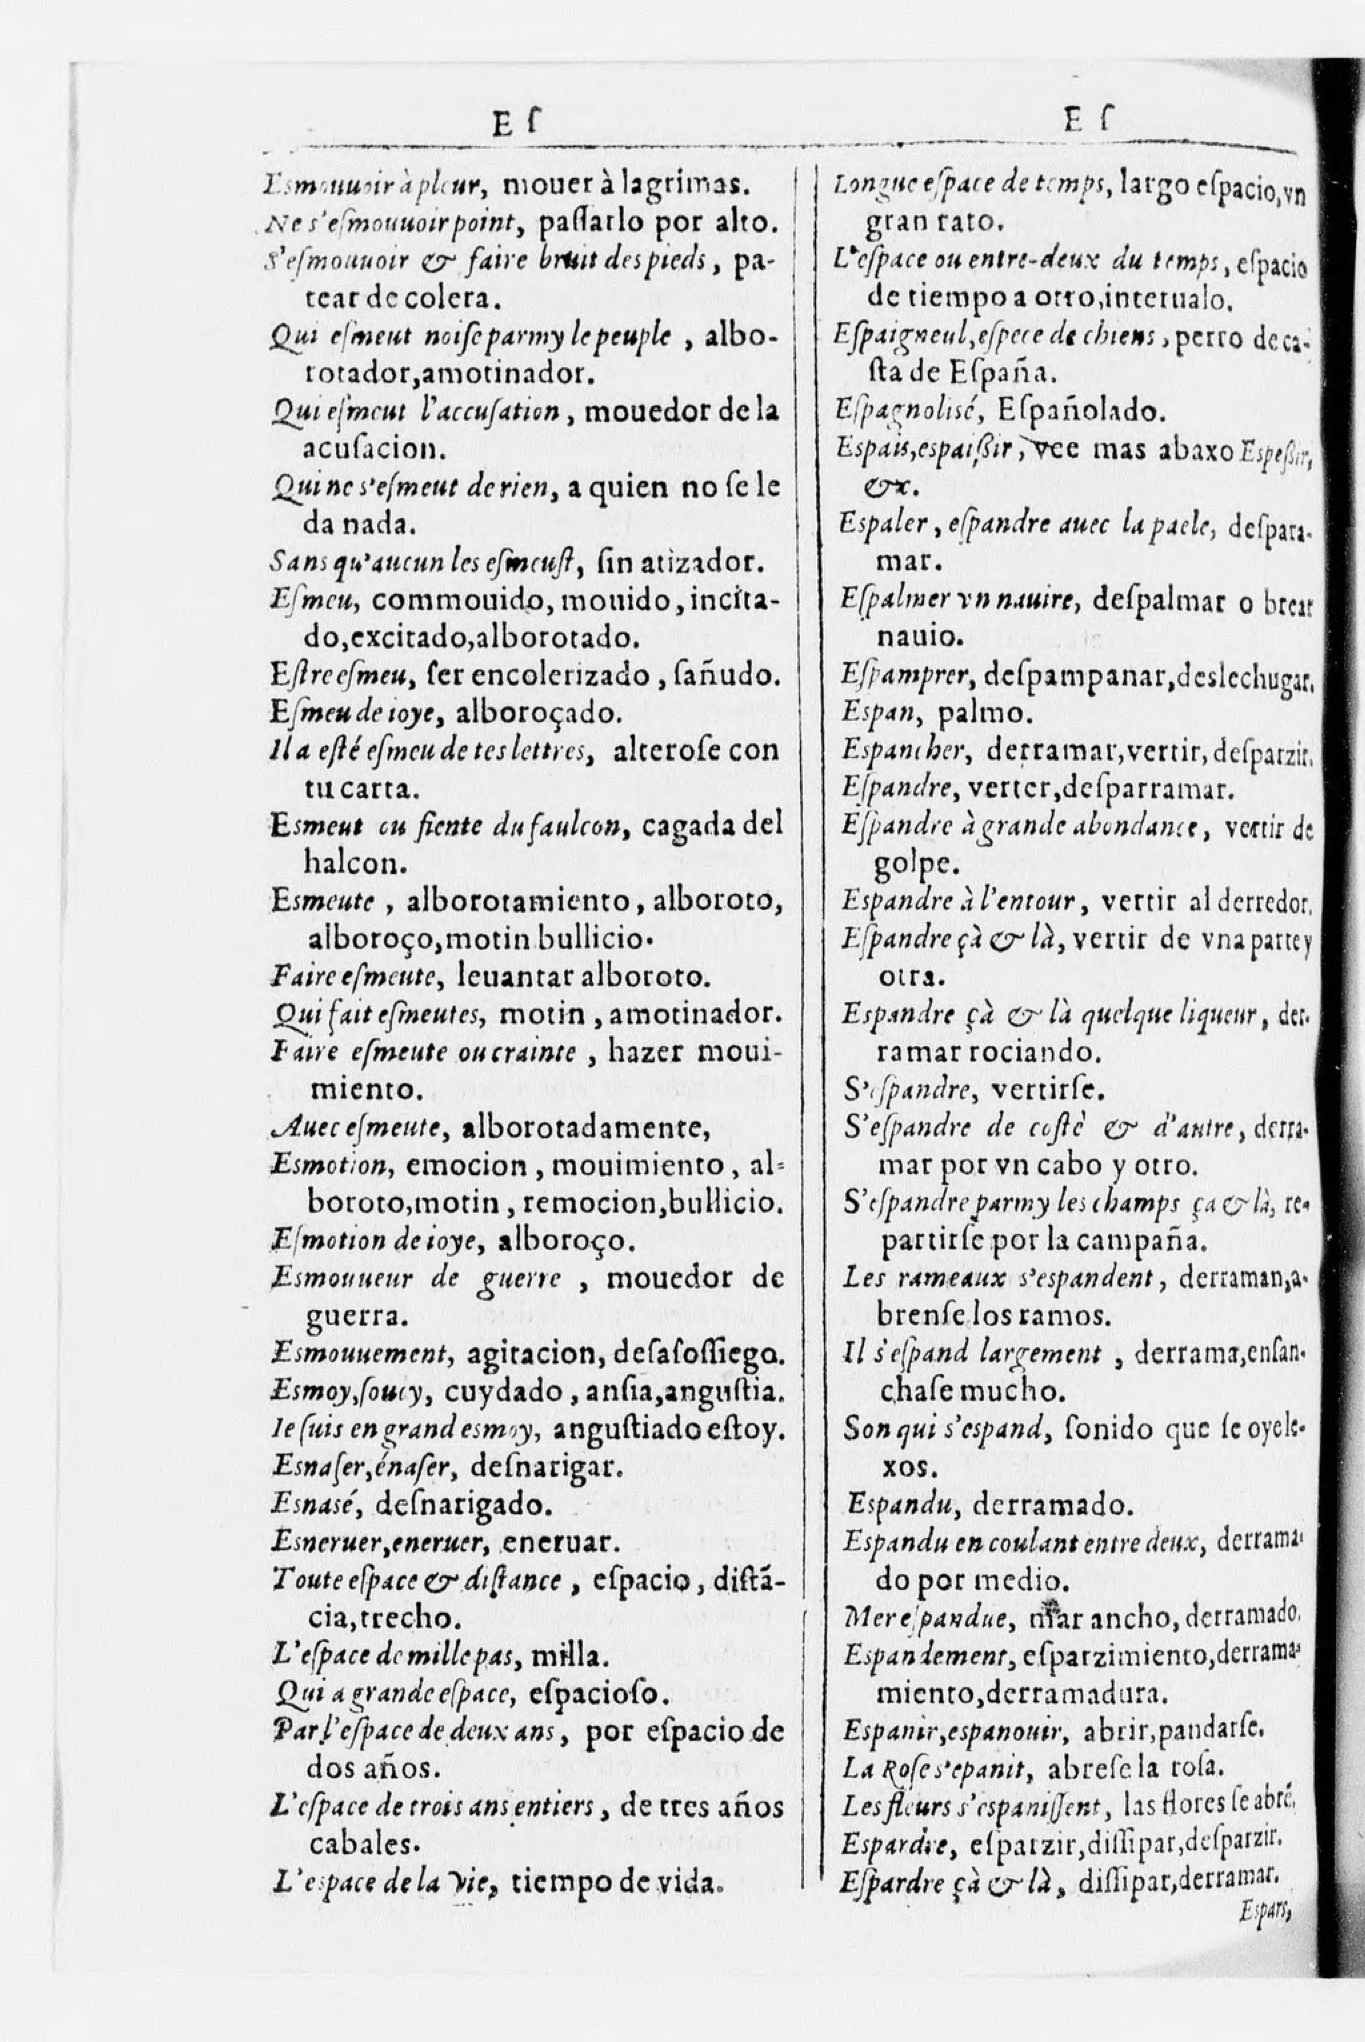 E ſ
Esmouuoir à pleur, mouer à lagrimas.
Ne s'eſmouuoir point, paſſarlo por alto.
S'eſmouuoir & faire bruit des pieds, pa-
tear de colera.
Qui eſmeut noiſe parmy le peuple, albo-
rotador, amotinador.
Qui eſmeut l'accuſation, mouedor de la
acuſacion.
Qui ne s'eſmeut de rien, a quien no ſe le
da nada.
Sans qu'aucun les eſmeuſt, ſin atizador.
Eſmeu, commouido, mouido, incita-
do, excitado, alborotado.
Eſtre eſmeu, ſer encolerizado, ſañudo.
Eſmeu de ioye, alboroçado.
Il a eſté eſmeu de tes lettres, alteroſe con
tu carta.
Esmeut ou fiente du faulcon, cagada del
halcon.
Esmeute, alborotamiento, alboroto,
alboroço, motin bullicio.
Faire eſmeute, leuantar alboroto.
Qui fait eſmeutes, motin, amotinador.
Faire eſmeute ou crainte, hazer moui-
miento.
Auec eſmeute, alborotadamente,
Esmotion, emocion, mouimiento, al-
boroto, motin, remocion, bullicio.
Eſmotion de ioye, alboroço.
Esmouueur de guerre, mouedor de
guerra.
Esmouuement, agitacion, deſaſoſſiego.
Esmoy, ſoucy, cuydado, anſia, anguſtia.
Ie ſuis en grand esmoy, anguſtiado eſtoy.
Esnaſer, énaſer, deſnarigar.
Esnasé, deſnarigado.
Esneruer, eneruer, eneruar.
Toute eſpace & diſtance, eſpacio, diſtã-
cia, trecho.
L'eſpace de mille pas, milla.
Qui a grande eſpace, eſpacioſo.
Par l'eſpace de deux ans, por eſpacio de
dos años.
L'eſpace de trois ans entiers, de tres años
cabales.
L'espace de la vie, tiempo de vida.
E ſ
Longue eſpace de temps, largo eſpacio, vn
gran rato.
L'eſpace ou entre-deux du temps, eſpacio
de tiempo a otro, interualo.
Eſpaigneul, eſpece de chiens, perro de ca-
ſta de Eſpaña.
Eſpagnolisé, Eſpañolado.
Espais, espaißir, vee mas abaxo Espeßir,
&x.
Espaler, eſpandre auec la paele, deſpara-
mar.
Eſpalmer vn nauire, deſpalmar o brear
nauio.
Eſpamprer, deſpampanar, deslechugar.
Espan, palmo.
Espancher, derramar, vertir, deſparzir.
Eſpandre, verter, deſparramar.
Eſpandre à grande abondance, vertir de
golpe.
Espandre à l'entour, vertir al derredor.
Eſpandre çà & là, vertir de vna parte y
otra.
Espandre çà & là quelque liqueur, der-
ramar rociando.
S'eſpandre, vertirſe.
S'eſpandre de coſtè & d'autre, derra-
mar por vn cabo y otro.
S'eſpandre parmy les champs ça & là, re-
partirſe por la campaña.
Les rameaux s'espandent, derraman, a-
brenſe los ramos.
Il s'eſpand largement, derrama, enſan-
chaſe mucho.
Son qui s'espand, ſonido que ſe oye le-
xos.
Espandu, derramado.
Espandu en coulant entre deux, derrama-
do por medio.
Mer eſpandue, mar ancho, derramado.
Espandement, eſparzimiento, derrama-
miento, derramadura.
Espanir, espanouir, abrir, pandarſe.
La Roſe s'epanit, abreſe la roſa.
Les fleurs s'espaniſſent, las flores ſe abrẽ.
Espardre, eſparzir, diſſipar, deſparzir.
Eſpardre çà & là, diſſipar, derramar.
Espars,